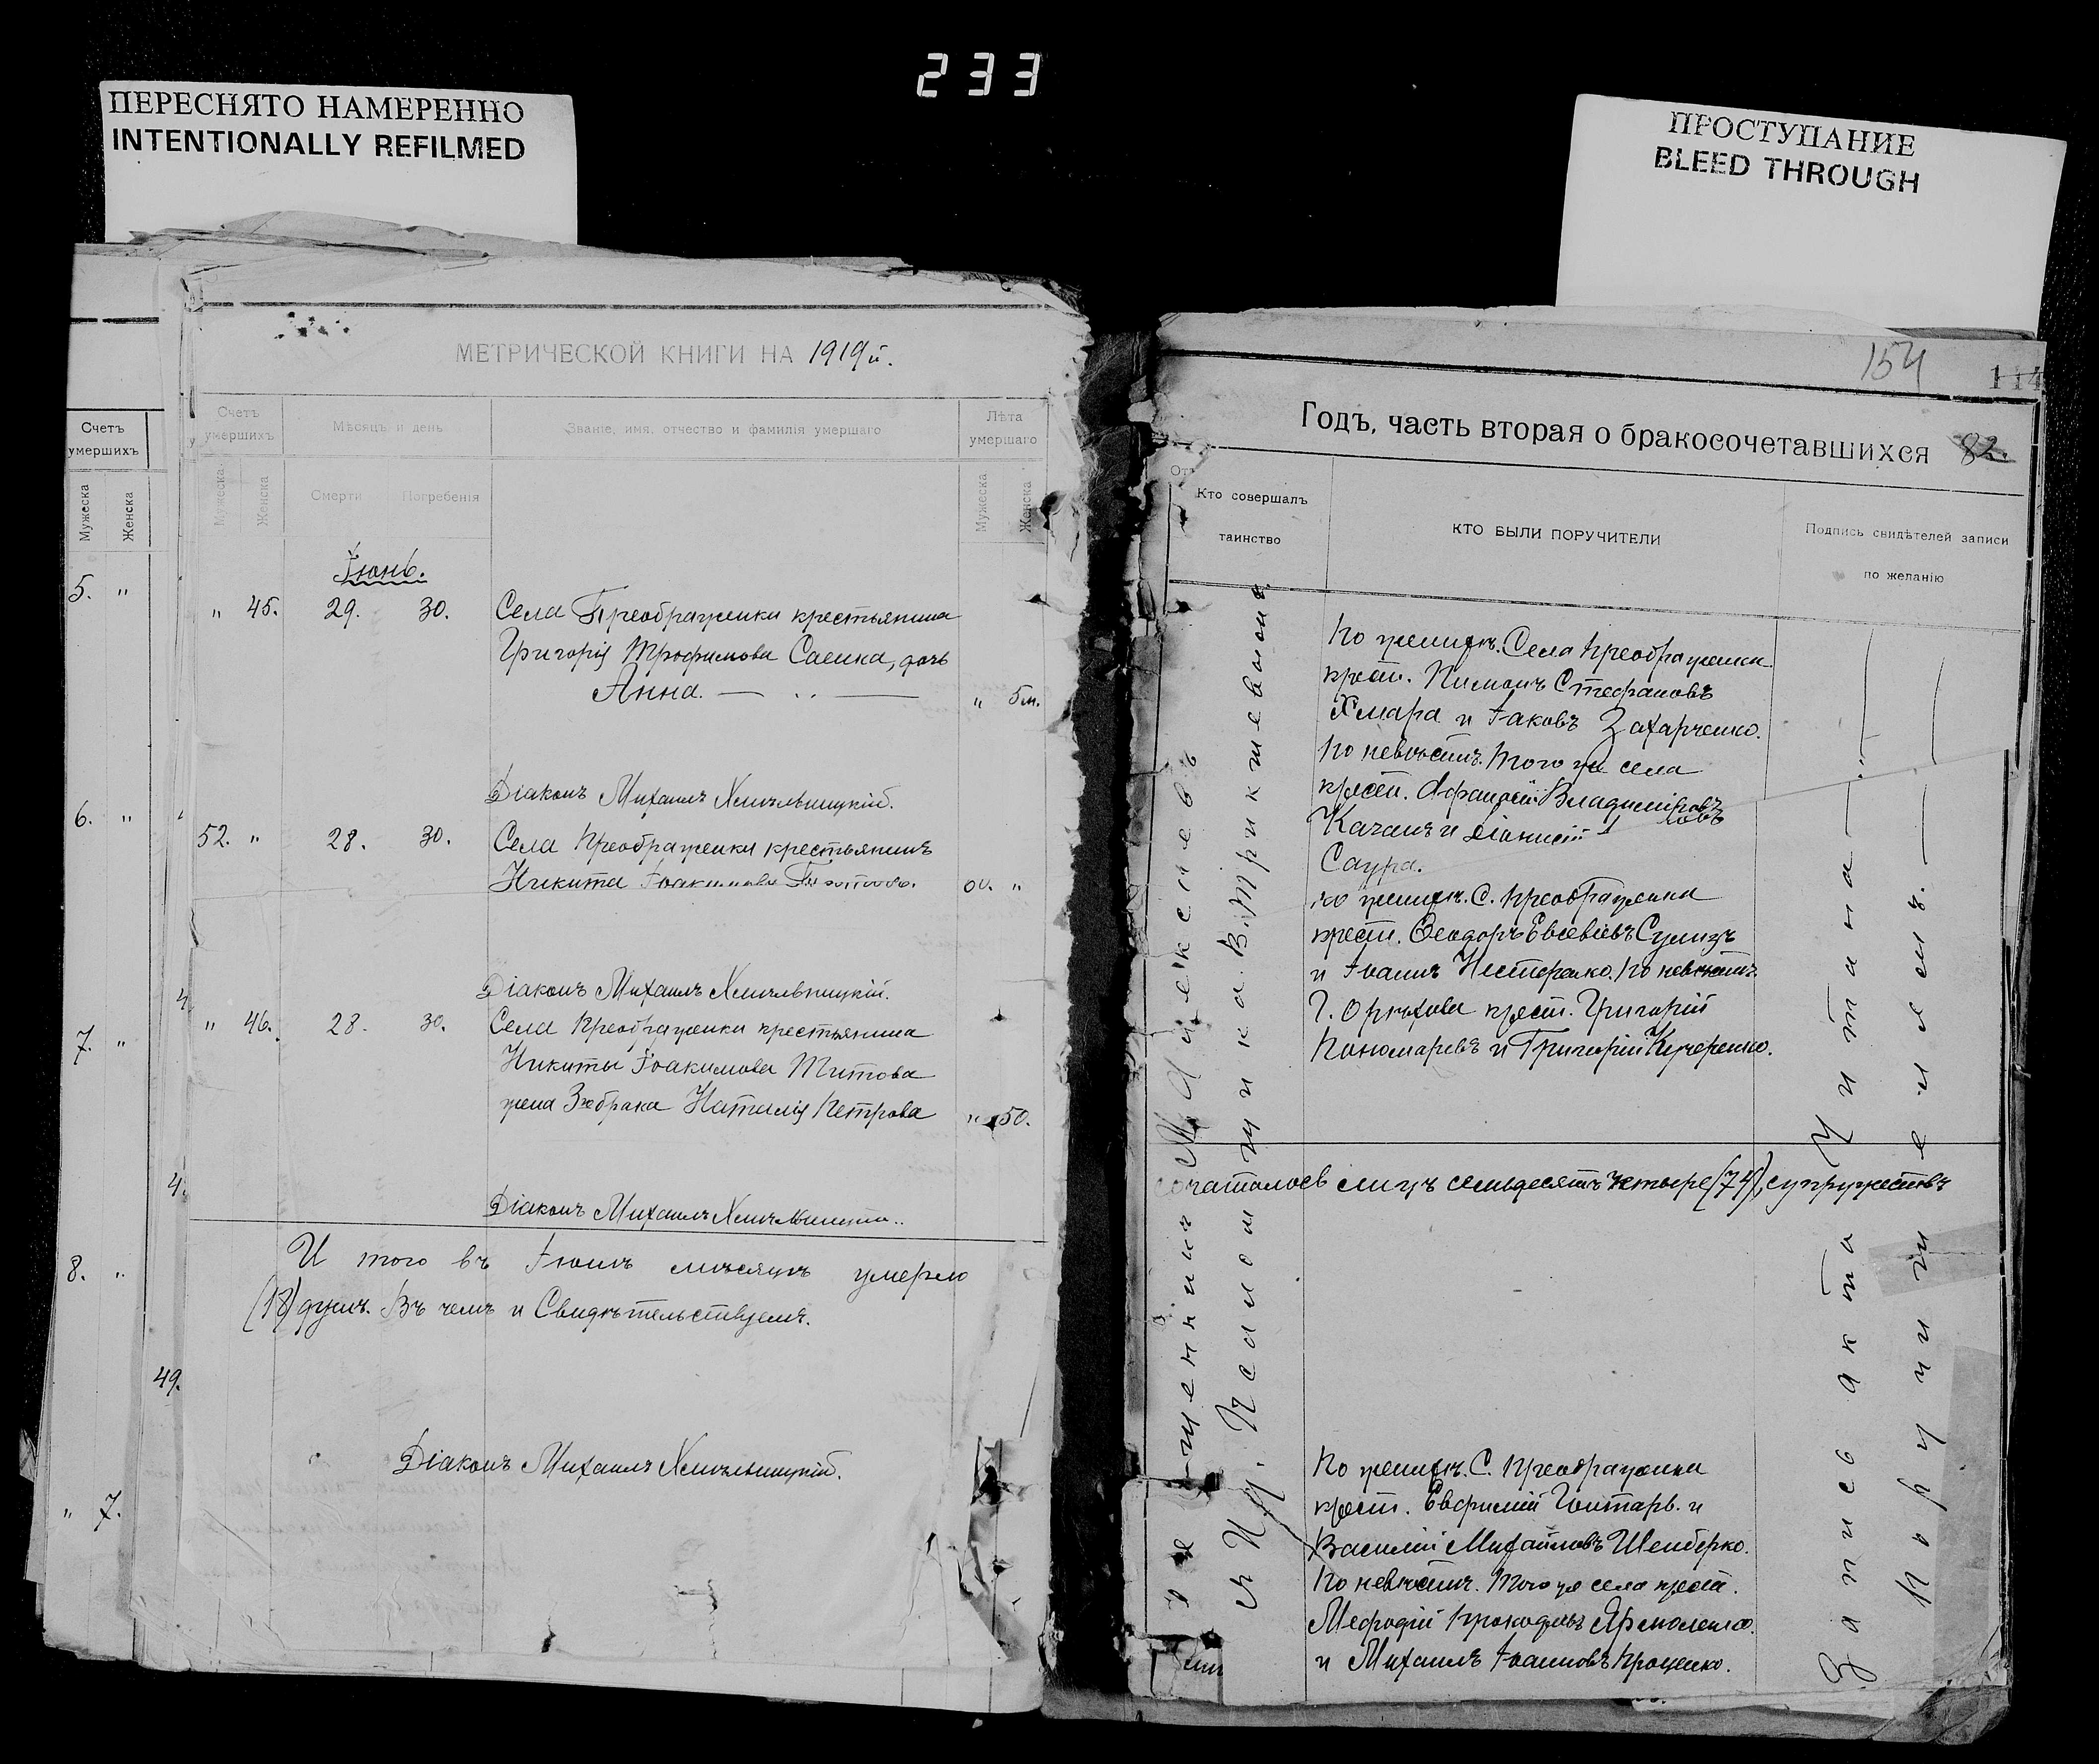 233
ПЕРЕСНЯТО НАМЕРЕННО
INTENTIONALLY REFILMED
ПРОСТУПАНИЕ
BLEED THROUGH
Счетъ
умершихъ
Мужеска
Женска
5. "
6. "
7. "
8. "
" 7.
4.
4.
49.
МЕТРИЧЕСКОЙ КНИГИ НА 1919й.
Счетъ
умершихъ
Мѣсяцъ и день
Званіе, имя, отчество и фамилія умершаго
Лѣта
умершаго
Мужеска
Женска
Смерти
Погребенія
Мужеска
Женска
Іюнь.
" 45. 29. 30. Села Преображенки крестьянина
Григорія Трофимова Саенка, дочь
Анна. " 5м.
Діаконъ Михаилъ Хмѣльницкій.
52. " 28. 30. Села Преображенки крестьянинъ
Никита Іоакимовъ "
Діаконъ Михаилъ Хмѣльницкій.
" 46. 28. 30. Села Преображенки крестьянина
Никиты Іоакимова Титова
жена 3го брака Наталія Петрова " 50.
Діаконъ Михаилъ
И того въ Іюнѣ мѣсяцѣ умерло
(18) душъ. Въ чемъ и Свидѣтельствуемъ.
Діаконъ Михаилъ Хмѣльницкій.
154
114
Годъ, часть вторая о бракосочетавшихся 82.
Кто совершалъ
таинство
КТО БЫЛИ ПОРУЧИТЕЛИ
Подпись свидѣтелей записи
по желанію
По женихѣ. Села Преображенки
крест. Пименъ Стефановъ
Хмара и Іаковъ Захарченко.
По невѣстѣ. Того же села
крест. Афанасій Владиміровъ
Качанъ и Діонисій
Саура.
По женихѣ. С. Преображенки
крест. Ѳеодоръ Евсевіевъ
и Іоаннъ Нестеренко. По невѣстѣ
Г. Орѣхова крест. Григорій
Пономаревъ и Григорій Кучеренко.
сочаталось лицъ семьдесятъ четыре (74), супружествъ
По женихѣ. С. Преображенки
крест. Евфимій Гонтарь. и
Василій Михайловъ
По невѣстѣ. Того же села крест.
Мефодій Прокофьевъ Ярмоленко.
и Михаилъ Іоанновъ Проценко.
Запись акта читана
поручителямъ.